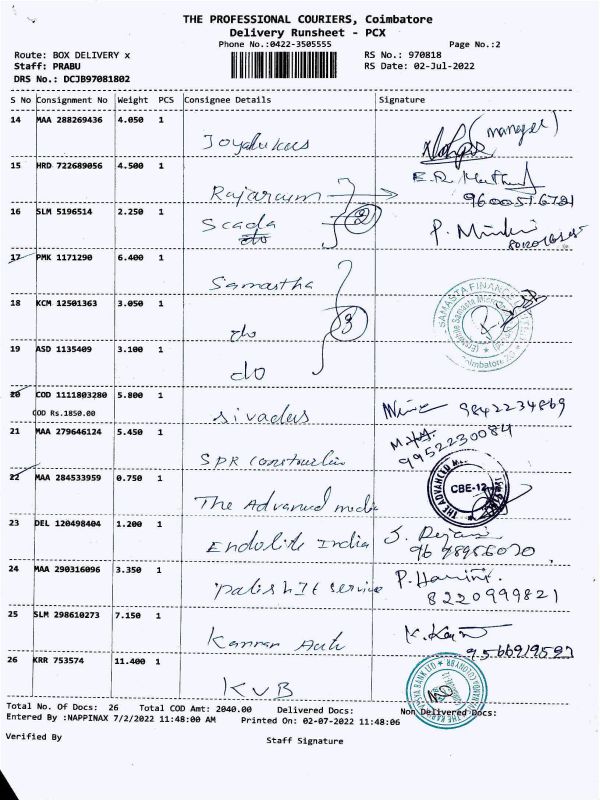 THE PROFESSIONAL COURIERS, Coimbatore
Delivery Runsheet - PCX
Phone No.:0422-3505555
Page No.:2
Route: BOX DELIVERY x
RS No.: 970818
Staff: PRABU
RS Date: 02-Jul-2022
DRS No.: DCJB97081802
S No Consignment No Weight PCS Consignee Details Signature
14 MAA 288269436 4.050 1
Joyalukas
(manager)
15 HRD 722689056 4.500 1
Rajaram
16 SLM 5196514 2.250 1
Scada
do
2
17 PMK 1171290 6.400 1
Samastha
18 KCM 12501363 3.050 1
do
3
19 ASD 1135409 3.100 1
do
20 COD 1111803280 5.800 1
COD Rs.1850.00
sivadas 9842234869
21 MAA 279646124 5.450 1
9952230084
SPR construction
22 MAA 284533959 0.750 1
CBE-12
The Advanced media
23 DEL 120498404 1.200 1
Endolite India
24 MAA 290316096 3.350 1
service
P. Harini
8220999821
25 SLM 298610273 7.150 1
Kannan Auto
26 KRR 753574 11.400 1
KVB
Total No. Of Docs: 26 Total COD Amt: 2040.00 Delivered Docs: Non Delivered Docs:
Entered By :NAPPINAX 7/2/2022 11:48:00 AM Printed On: 02-07-2022 11:48:06
Verified By
Staff Signature